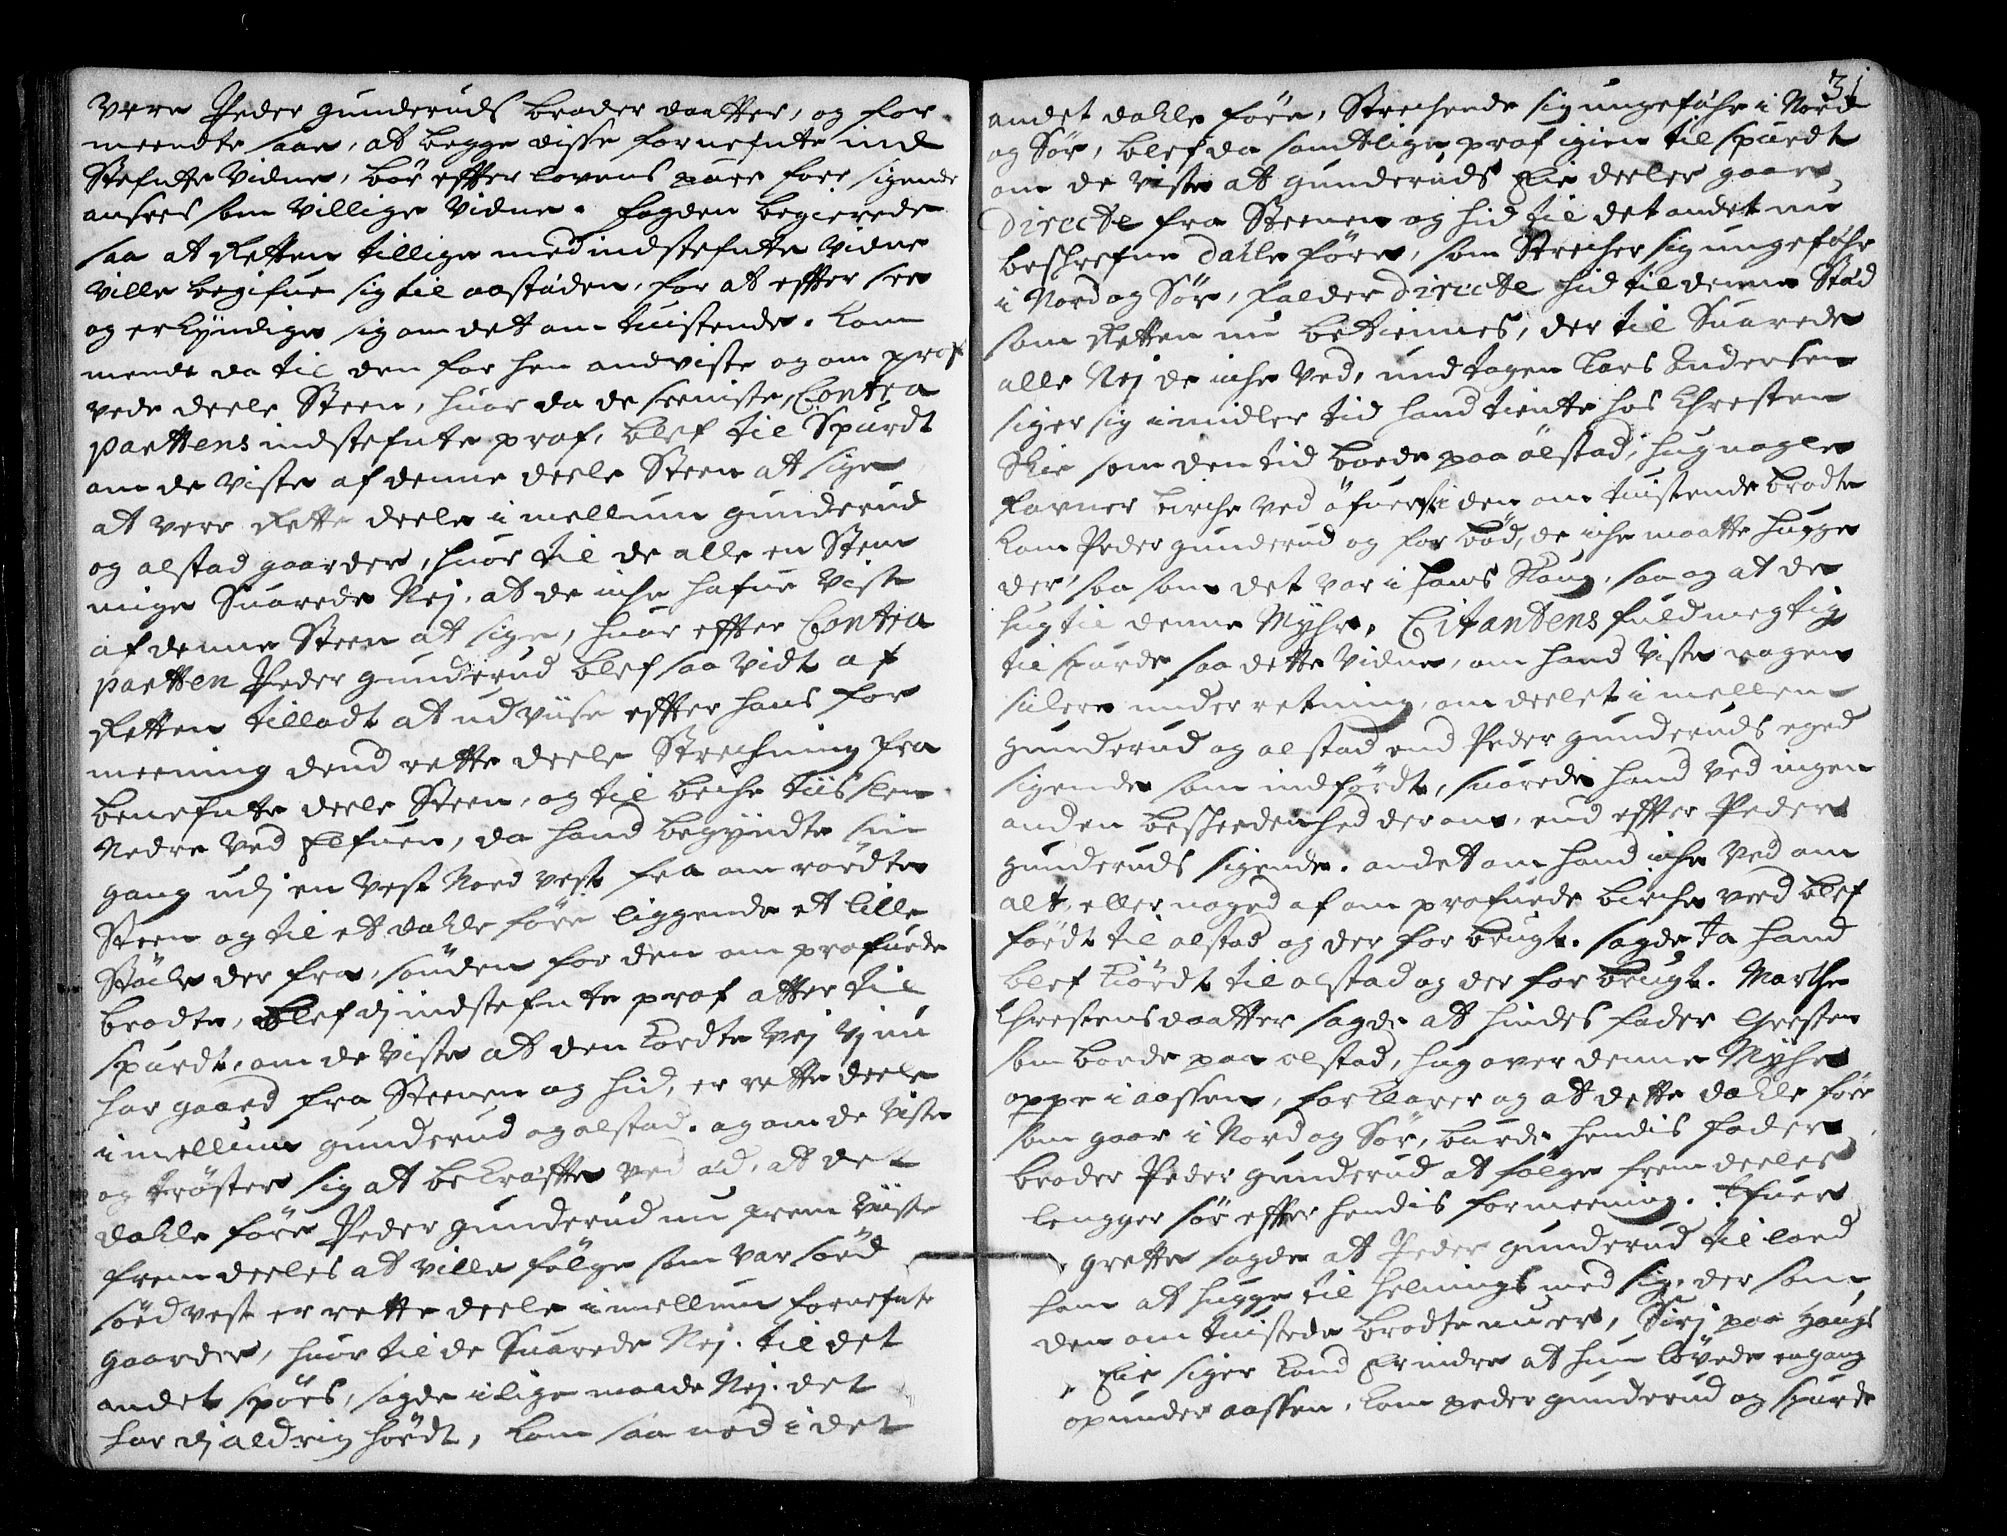 Vere Peder gunderuds broder daatter, og for
meendte saa, at begge disse fornefnte ind
Stefnte Vidne, bör effter lovens pure foer sigende
ansees som villige Vidne. fogden begierede
saa at Retten tillige med indstefnte Vidne
ville begifue sig til aastæden, for at effter see
og erkyndige sig om det om tuistende. kom
mende da til den for hen andviste og om prof
vede deele Steen, huor da de seeniste, Contra
parttens indstefnte prof, blef til Spurdt
om de viste af denne deele Steen at sige
at vere Rette deele i mellum gunderud
og alstad gaarder, huor til de alle en Stem
mige Suarede Nej, at de iche hafue vist
af denne Steen at sige, huor effter Contra
partten Peder gunderud blef saa vidt af
Retten tilladt at udviise effter hans for
meening dend rette deele Strechning fra
benefnte deele Steen, og til beche tiislen
Nedre ved Elfuen, da hand begyndte sin
gang udj en vest Nord vest fra om rördte
Steen og til et dahle före liggende et lille
Støche der fra, sönden for den om profuede
brodte, blef dj indstefnte prof atter til
spurdt, om de viste at den kordte vej vj nu
har gaaed fra Steenen og hid, er rette deele
i mellum gunderud og alstad. og om de viste
og tröster sig at bekrefte ved æd, at det
dahle före Peder gunderud nu frem viiste
frem deeles at ville fölge som var sörd
sörd vest er rette deele i mellum fornefnte
gaarder, huor til de Suarede Nej. til det
andet spörs, sagde i lige maade Nej. det
har dj aldrig hördt, kom saa ned i det
31
andet dahle före, Strechende sig ungefähr i Nord
og Sör, blef da samtlige prof igien til spurdt
om de viste at gunderuds Eie deeler gaar
directe fra Steenen og hid til det andet nu
beschrefne dahle före, som Strecher sig ungefähr
i Nord og Sör, falder directe hid til denne Stæd
som Retten nu betiennes, der til Suarede
alle Nej de iche ved, undtagen Lars Andersen
siger sig imidler tid hand tiente hos Chresten
Skie som den tid boede paa ölstad, hug nogle
favner birche ved öfuer i den om tuistende brodte
kom Peder gunderud og for böd, de iche maatte hugge
der, saa som det var i hans Skoug, saa og at de
hug til denne Myhr, Citantens fuldmegtig
til spurde saa dette Vidne, om hand viste nogen
siclere under retning, om deelet i mellem
gunderud og alstad end Peder gunderuds eged
sigende som indfördt, suarede hand ved ingen
anden beskeedenhed der om, end effter Peder
gunderuds sigende. andet om hand iche ved om
alt, eller noged af om profuede birche ved blef
fördt til alstad og der for brugt. sagde Ja hand
blef kiördt til alstad og der for brugt. Marthe
Chrestensdaatter sagde at hindes fader Chresten
som boede paa alstad, hug over denne Myhr
oppe i aassen, for klarer og at dette dahle före
som gaar i Nord og Sör, burde hendis faders
broder Peder gunderud at følge frem deeles
lengger sör effter hendis formeening. Ifuer
grette sagde at Peder gunderud til loed
ham at hugge til helnings med sig, der som
den om tuistede brodte nu er, Sirj paa Haugs
Eie siger kand Erindre at hun løvede engang
op under aassen, kom peder gunderud og spurde